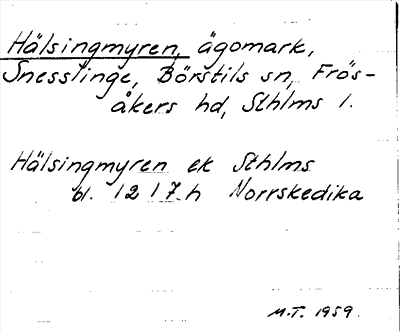 Hälsingmyren, ägomark,
Snesslinge, Börstils sn, Frös-
åkers hd, Sthlms l.
Hälsingmyren ek Sthlms
bl. 1217h Norrskedika
M.T. 1959.